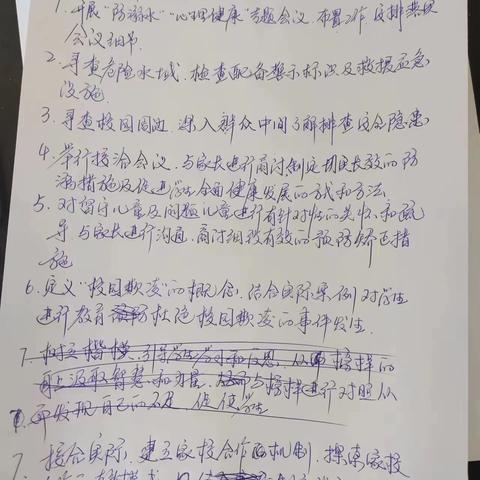 1. 开展"防溺水""心理健康"专题会议、布置工作、安排
会议细节.
2. 寻查危险水域、检查配备警示标识及救援应急
设施.
3. 寻查校园周边、深入群众中间了解排查安全隐患
4. 举行接洽会议、与家长进行商讨制定切实长效的防
溺措施及促进学生全面健康发展的方式和方法.
5. 对留守儿童及问题儿童进行有针对性的关怀和疏
导、与家长进行沟通、商讨细致有效的预防矫正措
施
6. 定义"校园欺凌"的概念、结合实际案例对学生
进行教育 杜绝校园欺凌的事件发生.
7. 楷模、引导学生学习和反思、从 榜样的
身上汲取智慧和力量、与榜样进行对照从
再发现自己的不足、促使学生
7. 接合实际、建立家校合作 机制、探索家校